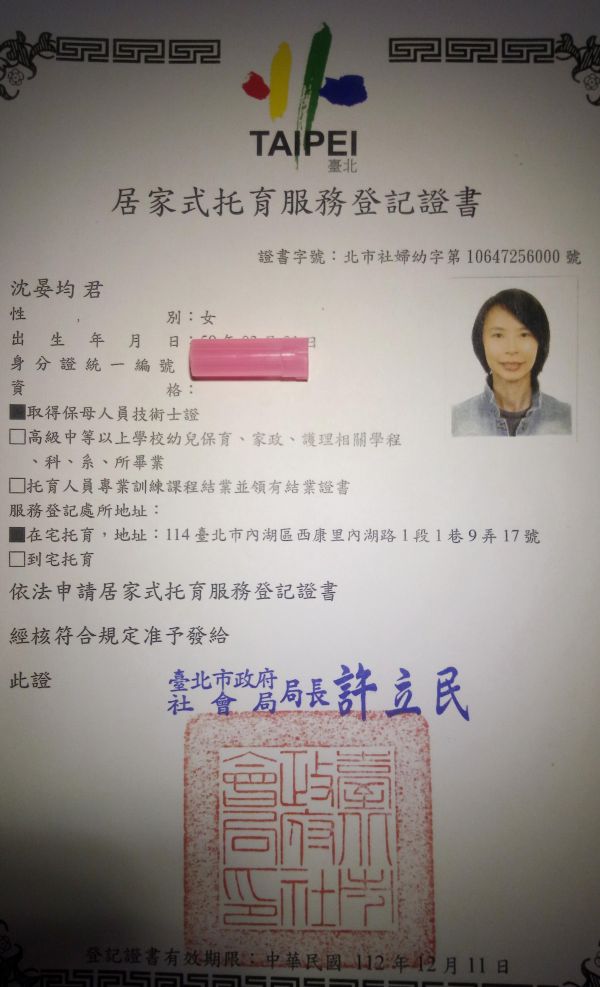 TAIPEI
臺北
居家式托育服務登記證書
證書字號：北市社婦幼字第10647256000號
沈晏均 君
性別：女
出生年月日：
身分證統一編號
資格：
■取得保母人員技術士證
□高級中等以上學校幼兒保育、家政、護理相關學程
、科、系、所畢業
□托育人員專業訓練課程結業並領有結業證書
服務登記處所地址：
■在宅托育，地址：114臺北市內湖區西康里內湖路1段1巷9弄17號
□到宅托育
依法申請居家式托育服務登記證書
經核符合規定准予發給
此證
臺北市政府
社會局局長許立民
臺北市
政府社
會局印
登記證書有效期限：中華民國 112年12月11日